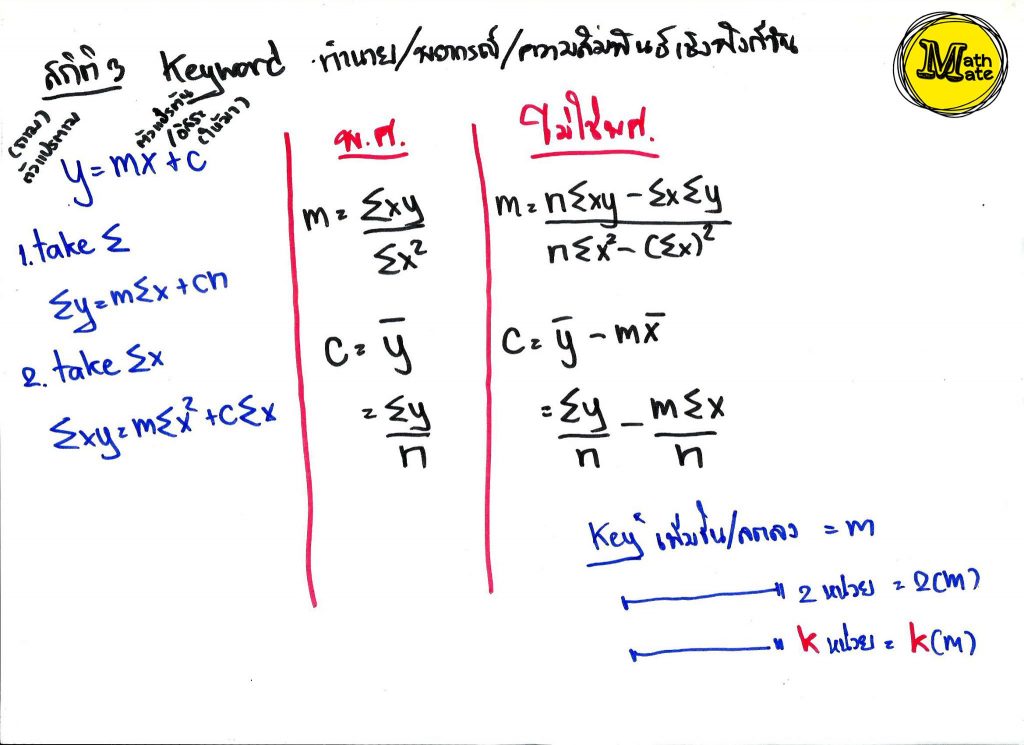 สถิติ 3 Keyword ทำนาย/พยากรณ์/ความสัมพันธ์เชิงฟังก์ชัน
Math Mate
(ถาม)
ตัวแปรตาม
ตัวแปรต้น
/อิสระ
(ให้มา)
y = mx + c
1. take Σ
Σy = mΣx + cn
2. take Σx
Σxy = mΣx² + cΣx
พ.ศ.
m = Σxy / Σx²
c = ȳ
= Σy / n
ไม่ใช่ พศ.
m = nΣxy - ΣxΣy / nΣx² - (Σx)²
c = ȳ - mx̄
= Σy / n - mΣx / n
Key" เพิ่มขึ้น/ลดลง = m
2 หน่วย = 2(m)
k หน่วย = k(m)